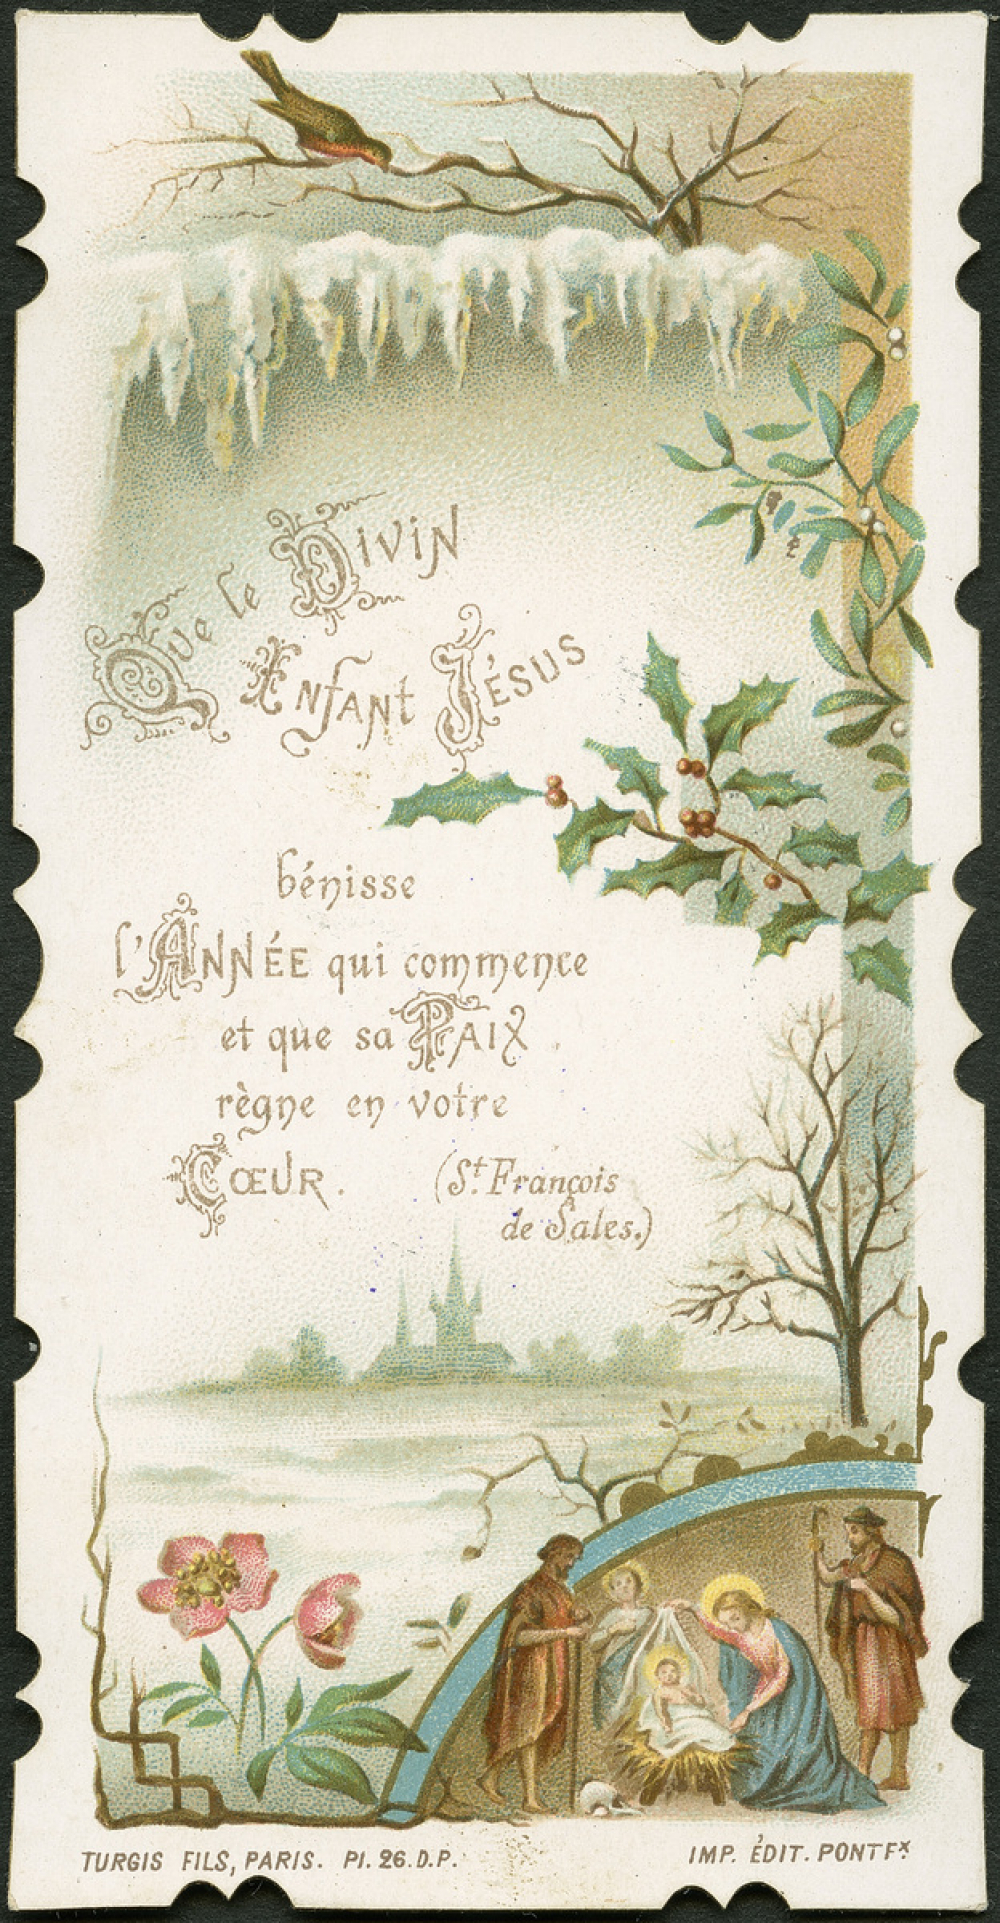 Que le Divin
Enfant Jésus
bénisse
l'Année qui commence
et que sa Paix
règne en votre
Cœur. (St. François
de Sales.)
TURGIS FILS, PARIS. Pl. 26. D.P. IMP. ÉDIT. PONTFx.